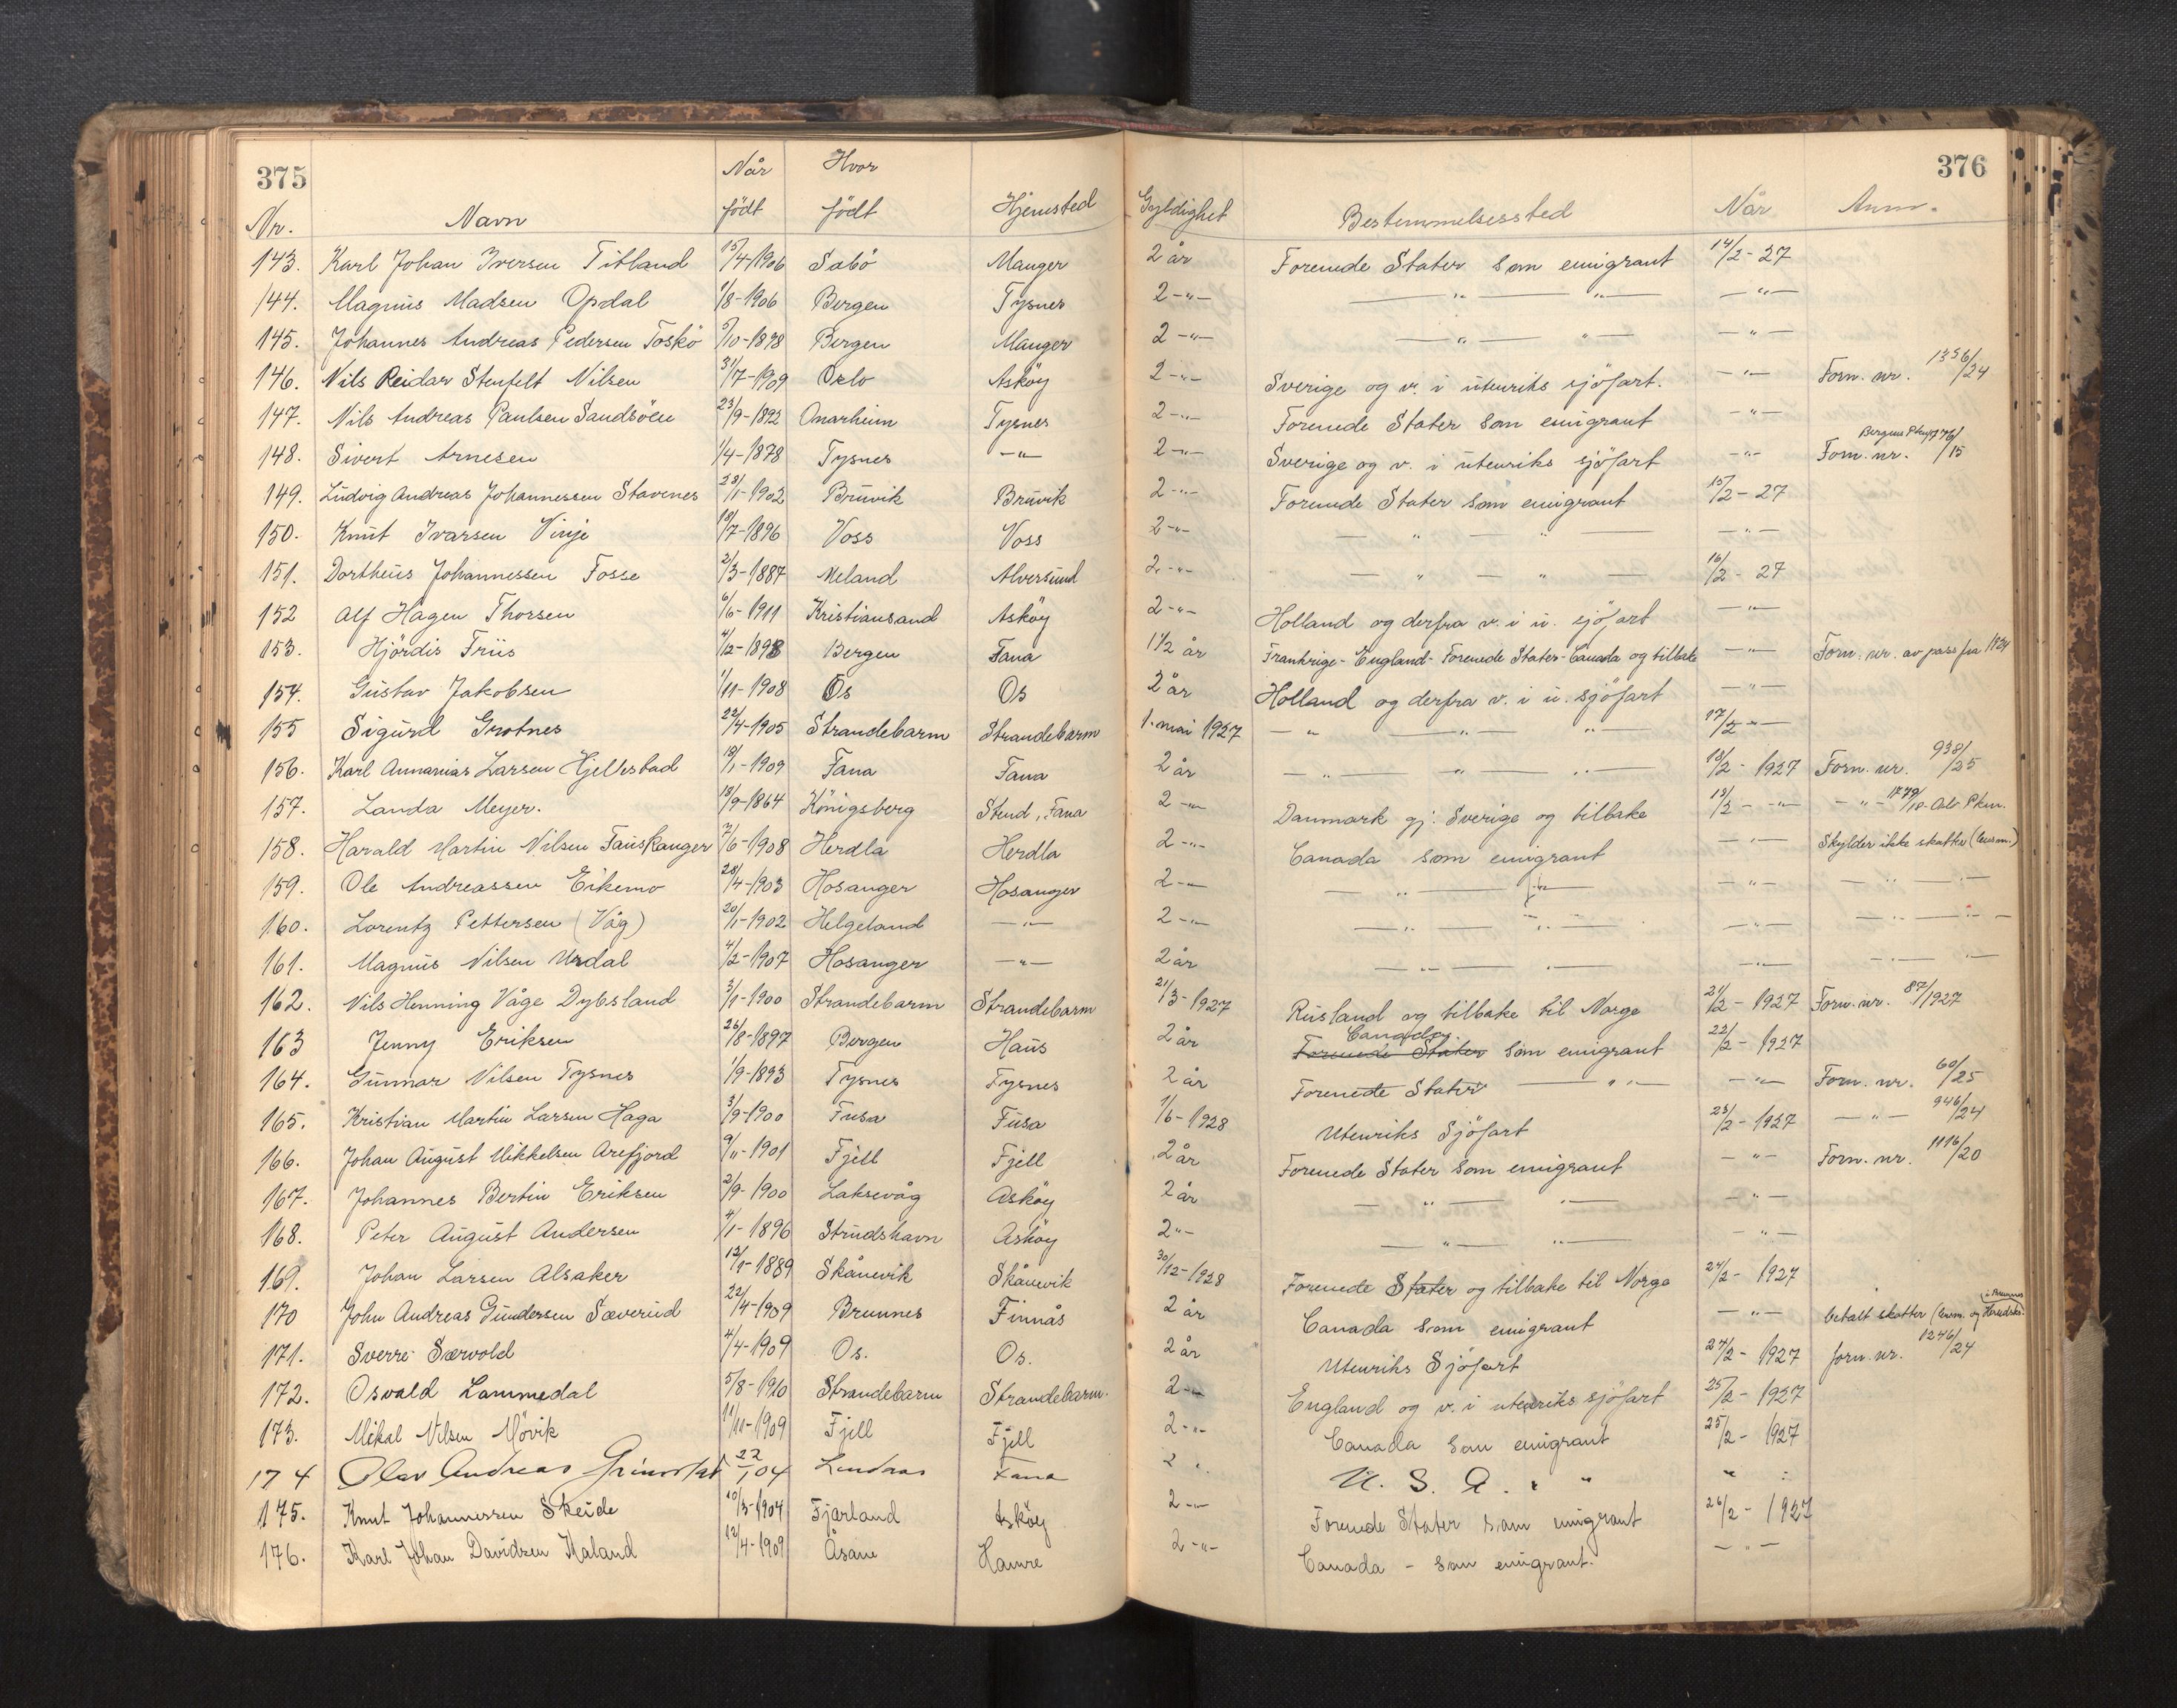 375 376
Når Hvor
Nr. Navn født født Hjemsted Gyldighet Bestemmelsessted Når Anm.
143. Karl Johan Iversen Titland 15/4-1906 Sabö Manger 2 år Forenede Stater som emigrant 14/2-27
144. Magnus Madsen Opdal 1/8-1906 Bergen Tysnes 2 -"- —"— —"— —"—
145. Johannes Andreas Pedersen Toskö 5/10-1898 Bergen Manger 2 -"- —"— —"— —"—
146. Nils Reidar Stenfelt Nilsen 31/7-1909 Oslo Asköy 2 -"- Sverige og v. i utenriks sjöfart. —"— Forn. nr. 1356/24
147. Nils Andreas Paulsen Sandsöen 23/9-1892 Onarheim Tysnes 2 -"- Forenede Stater som emigrant —"—
148. Sivert Arnesen 1/4-1878 Tysnes —"— 2 -"- Sverige og v. i utenriks sjöfart —"— Forn. nr. Bergens 176/15
149. Ludvig Andreas Johannessen Stavenes 28/1-1902 Bruvik Bruvik 2 -"- Forenede Stater som emigrant 15/2-27
150. Knut Ivarsen Vinje 18/7-1896 Voss Voss 2 -"- —"— —"— —"—
151. Dortheus Johannessen Fosse 2/3-1887 Meland Alversund 2 -"- —"— —"— 16/2-27
152 Alf Hagen Thorsen 6/6-1911 Kristiansand Asköy 2 -"- Holland og derfra v. i u. sjöfart —"—
153. Hjördis Friis 4/2-1898 Bergen Fana 1 1/2 år Frankrige-England-Forenede Stater-Canada og tilbake —"— Forn. nr. av pass fra 1924
154. Gustav Jakobsen 1/11-1908 Os Os 2 år Holland og derfra v. i u. sjöfart —"—
155 Sigurd Grotnes 22/4-1905 Strandebarm Strandebarm 1. mai 1927 —"— —"— —"— 17/2 -"-
156. Karl Annanias Larsen Hjellestad 18/1-1909 Fana Fana 2 år —"— —"— —"— 18/2-1927 Forn. nr. 938/25
157. Landa Meyer. 18/9-1864 Königsberg Stend, Fana 2 -"- Danmark gj. Sverige og tilbake 18/2 -"- —"— 1779/18 Oslo Pkm.
158. Harald Martin Nilsen Fauskanger 7/6-1908 Herdla Herdla 2 -"- Canada som emigrant —"— Skylder ikke skatter (lensm.)
159. Ole Andreassen Eikemo 28/4-1903 Hosanger Hosanger 2 -"- —"— —"— —"— —"—
160. Lorentz Pettersen (Våg) 20/1-1902 Helgeland —"— 2 -"- —"— —"— —"— —"—
161. Magnus Nilsen Urdal 4/2-1907 Hosanger —"— 2 år —"— —"— —"— —"—
162. Nils Henning Våge Dybsland 3/1-1900 Strandebarm Strandebarm 21/3-1927 Rusland og tilbake til Norge 21/2-1927 Forn. nr. 87/1927
163 Jenny Eriksen 26/8-1897 Bergen Haus 2 år Forenede Stater Canada som emigrant 22/2-1927
164. Gunnar Nilsen Tysnes 1/9-1893 Tysnes Tysnes 2 år Forenede Stater —"— —"— Forn. nr. 60/25
165. Kristian Martin Larsen Haga 3/9-1900 Fusa Fusa 1/6-1928 Utenriks Sjöfart 23/2-1927 —"— 946/24
166. Johan August Mikkelsen Arefjord 9/11-1901 Fjell Fjell 2 år Forenede Stater som emigrant —"— Forn. nr. 1116/20
167. Johannes Bertin Eriksen 2/9-1900 Laksevåg Asköy 2 år —"— —"— —"—
168. Peter August Andersen 4/1-1896 Strudshavn Asköy 2 "- —"— —"— —"—
169. Johan Larsen Alsaker 12/1-1889 Skånevik Skånevik 30/12-1928 Forenede Stater og tilbake til Norge 24/2-1927
170 John Andreas Gundersen Sæverud 22/4-1909 Bremnes Finnås 2 år Canada som emigrant —"— betalt skatter (lensm. og Herredsk. i Bremnes)
171. Sverre Særvold 4/4-1909 Os. Os. 2 år Utenriks Sjöfart 24/2-1927 forn. nr. 1246/24
172. Osvald Lammedal 5/8-1910 Strandebarm Strandebarm. 2 -"- England og v. i utenriks sjöfart 25/2-1927
173. Mikal Nilsen Mövik 11/11-1909 Fjell Fjell 2 -"- Canada som emigrant 25/2-1927
174 Olav Andreas Grimstad 22/1 04 Lindaas Fana 2 " U. S. A. " " " "
175. Knut Johannessen Skeide 10/3-1904 Fjærland Asköy 2 -"- Forenede Stater som emigrant 26/2-1927
176. Karl Johan Davidsen Kaland 12/4-1909 Åsane Hamre 2 -"- Canada - som emigrant. —"—